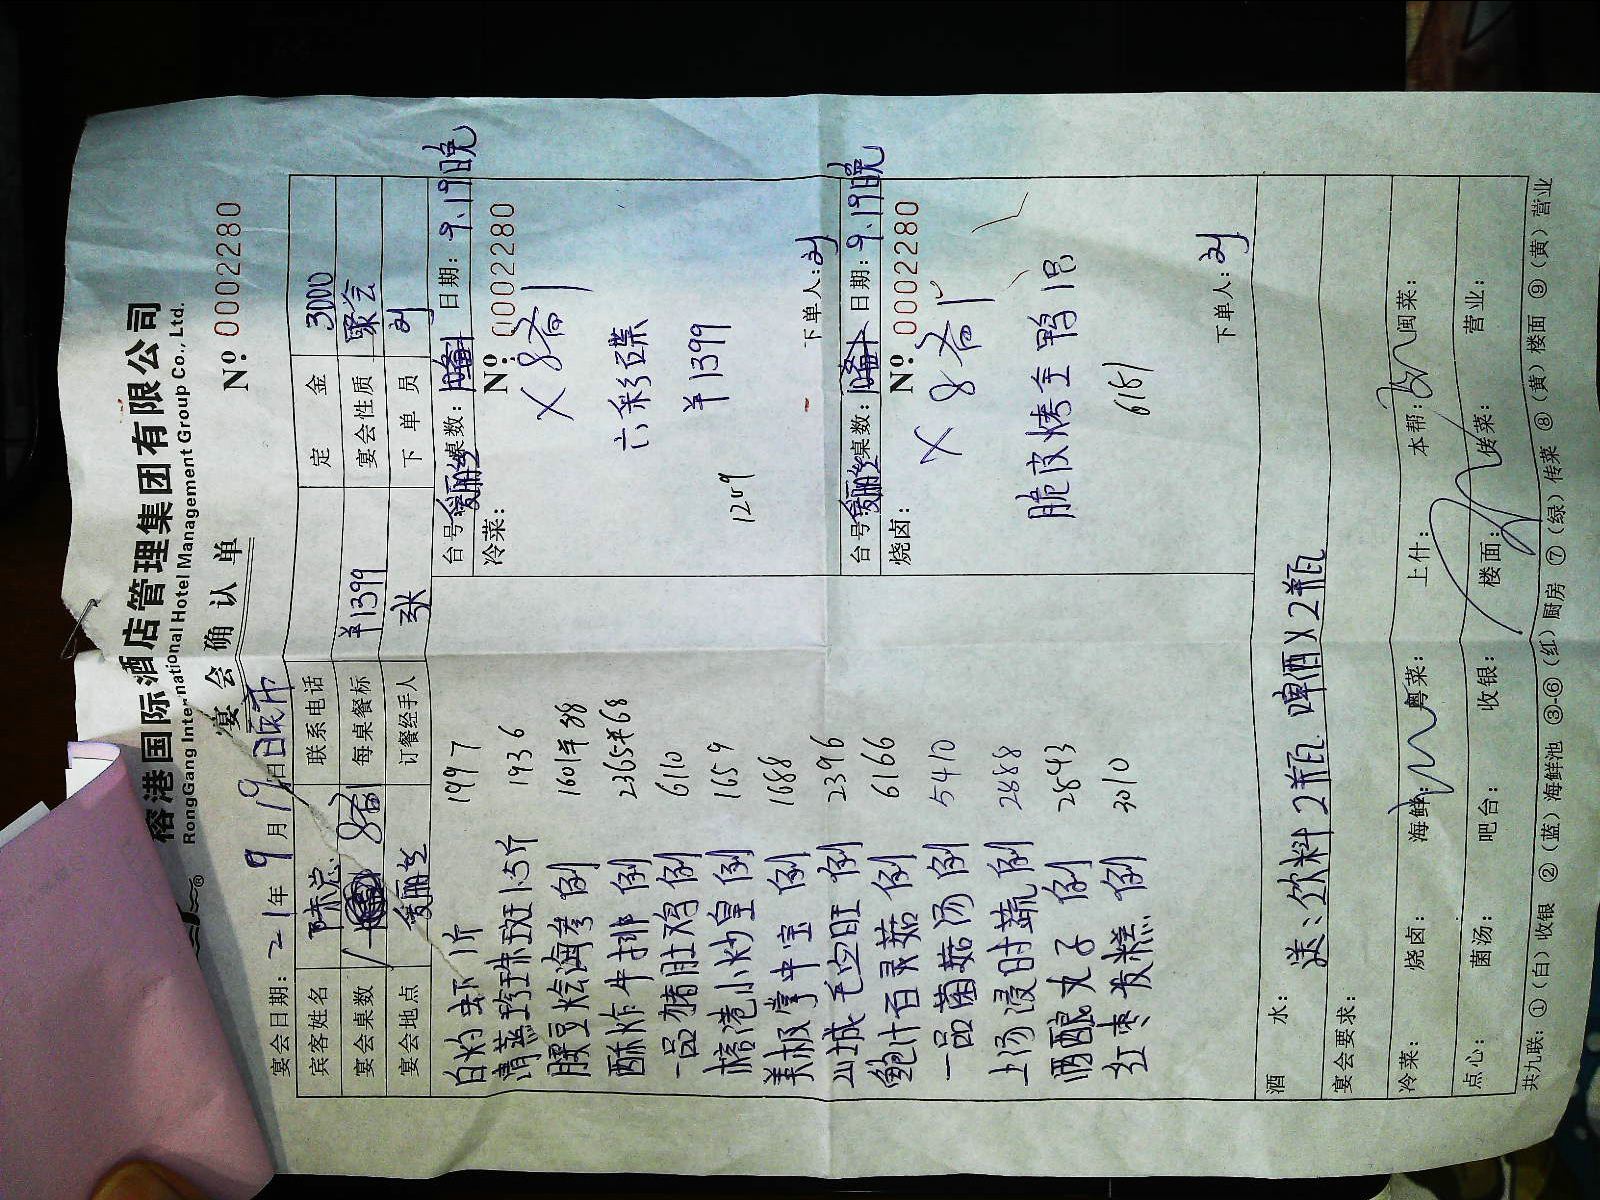 榕港国际酒店管理集团有限公司
RongGang International Hotel Management Group Co., Ltd.
®
宴会确认单
№ 0002280
宴会日期：21年9月19日晚市
宾客姓名 陈总 联系电话 定金 3000
宴会桌数 1 8备1 每桌餐标 ¥1399 宴会性质 聚会
宴会地点 爱丽丝 订餐经手人 张 下单员 刘
白灼虾 1斤 1997
清蒸珍珠斑 1.5斤 1936
腰豆烩海参 例 1601半88
酥炸牛排 例 2365半68
一品猪肚鸡 例 6110
榕港小炒皇 例 1659
美极掌中宝 例 1688
山城毛血旺 例 2396
鲍汁百灵菇 例 6166
一品菌菇汤 例 5410
上汤浸时蔬 例 2888
酒酿丸子 例 2843
红枣发糕 例 3010
台号 爱丽丝 桌数： 日期：9.19晚
冷菜： № 0002280
× 8备1
六彩碟
¥1399
1209
下单人：刘
台号 爱丽丝 桌数： 日期：9.19晚
烧卤： № 0002280
× 8备1
脆皮烤全鸭 1只
6151
下单人：刘
酒水： 送：饮料2瓶 啤酒×2瓶
宴会要求：
冷菜： 烧卤： 海鲜： 粤菜： 上什： 本帮： 闽菜：
点心： 菌汤： 吧台： 收银： 楼面： 传菜： 营业：
共九联：①（白）收银 ②（蓝）海鲜池 ③-⑥（红）厨房 ⑦（绿）传菜 ⑧（黄）楼面 ⑨（黄）营业